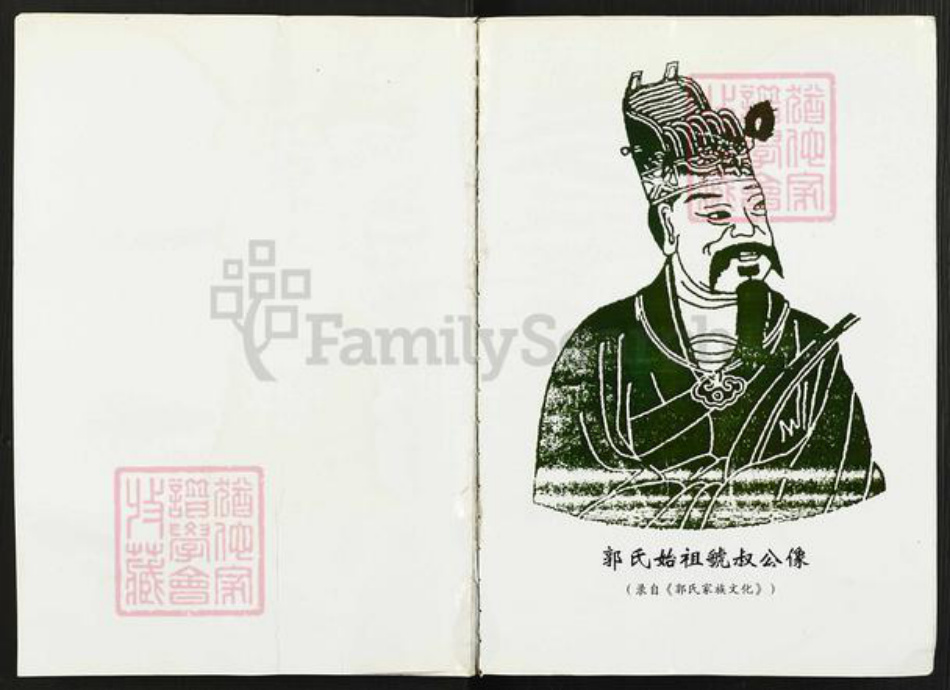 猶他家
譜學會
收藏
FamilySearch
猶他家
譜學會
郭氏始祖虢叔公像
（录自《郭氏家族文化》）